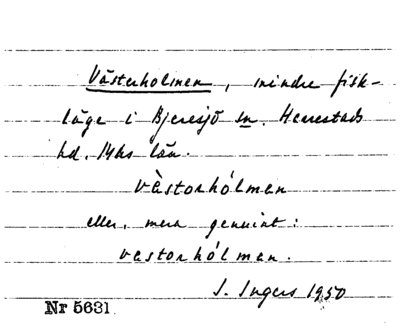 Västerholmen, mindre fisk-
läge i Bjeresjö sn. Herrestads
hd. Mhs län.
vàstərhólmən
eller, mera genuint:
vestərhólmən.
I. Ingers 1950
Nr 5631